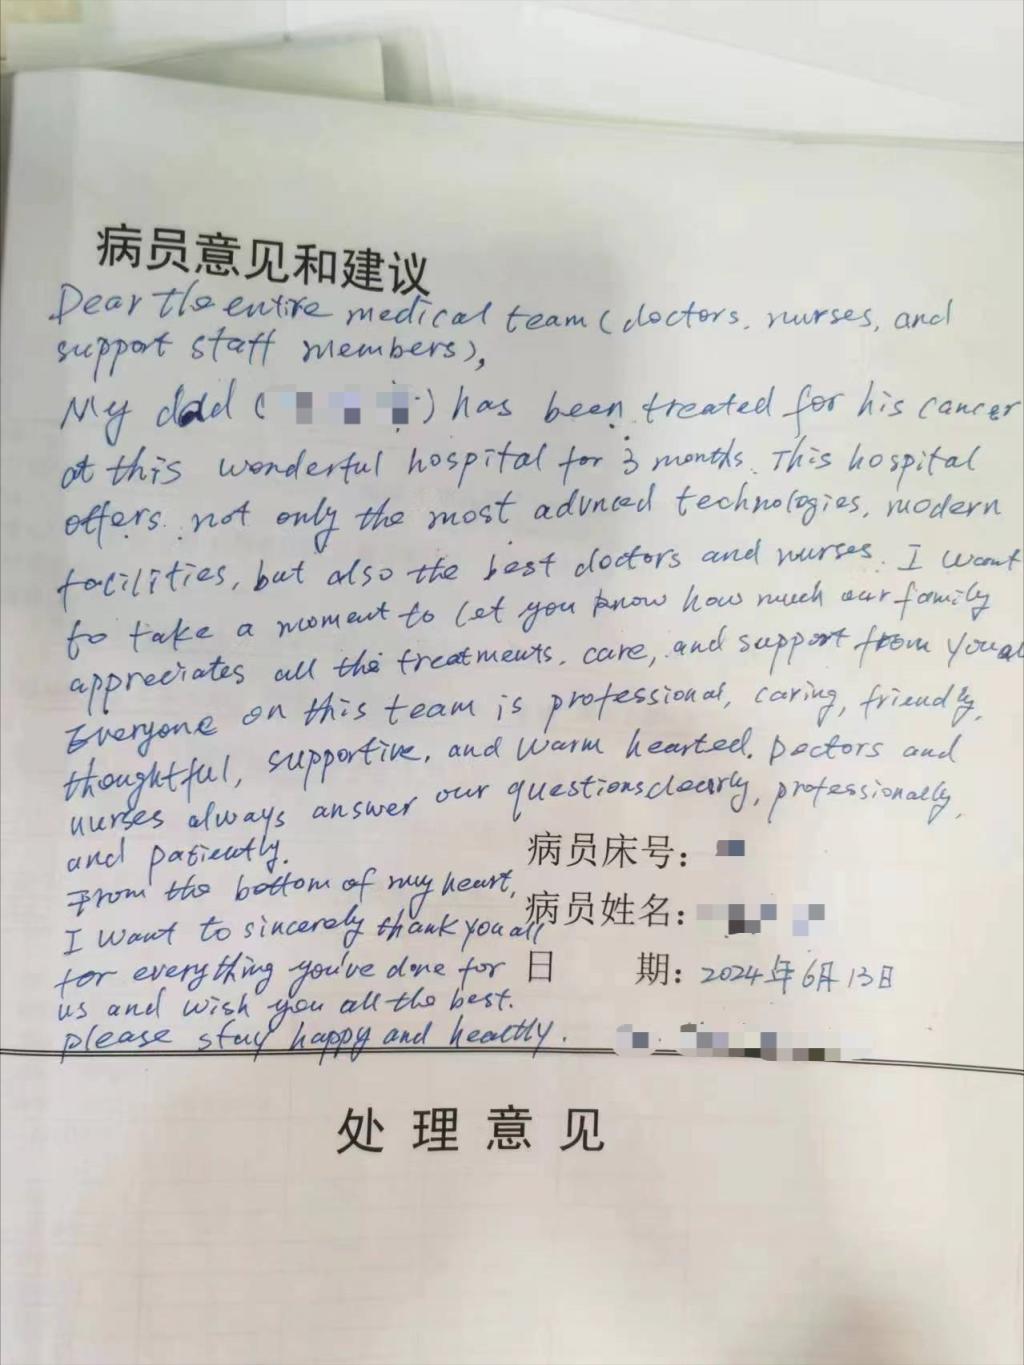 病员意见和建议
Dear the entire medical team (doctors, nurses, and
support staff members),
My dad ( ) has been treated for his cancer
at this wonderful hospital for 3 months. This hospital
offers not only the most advnced technologies, modern
facilities, but also the best doctors and nurses. I want
to take a moment to let you know how much our family
appreciates all the treatments, care, and support from you all
Everyone on this team is professional, caring, friendly,
thoughtful, supportive, and warm hearted. Doctors and
nurses always answer our questions clearly, professionally,
and patiently.
From the bottom of my heart,
I want to sincerely thank you all
for everything you've done for
us and wish you all the best.
please stay happy and healthy.
病员床号:
病员姓名:
日 期: 2024年6月13日
处理意见